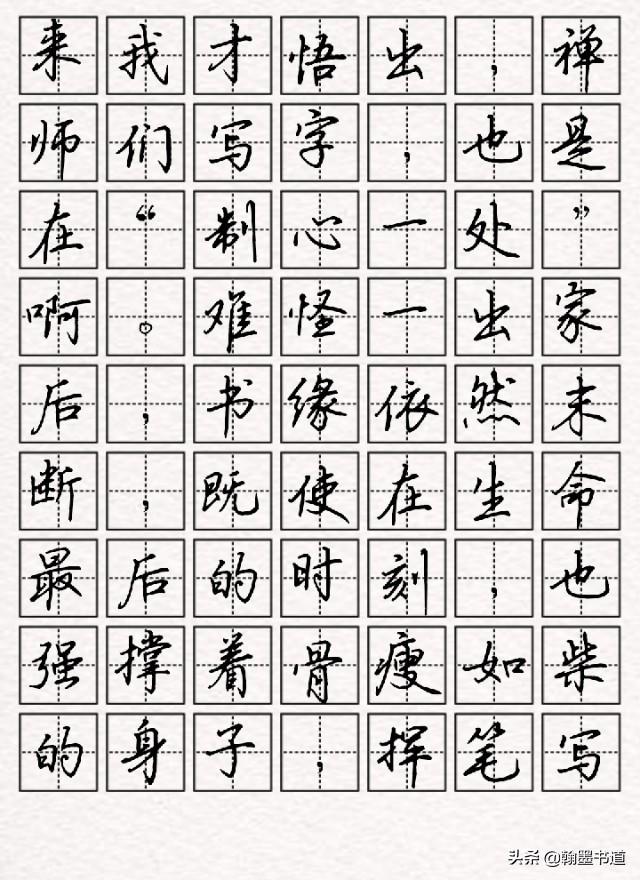 来我才悟出，禅
师们写字，也是
在“制心一处”
啊。难怪一出家
后，书缘依然末
断，既使在生命
最后的时刻，也
强撑着骨瘦如柴
的身子，挥笔写
头条 @翰墨书道